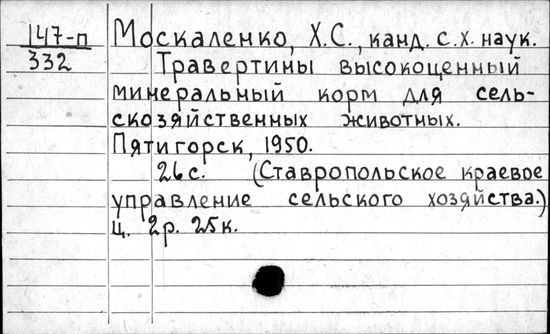 147-п
332
Москаленко, Х.С., канд. с.х. наук.
Травертины высокоценный
минеральный корм для сель-
скозяйственных животных.
Пятигорск, 1950.
26 с. (Ставропольское краевое
управление сельского хозяйства.)
Ц. 2р. 25к.